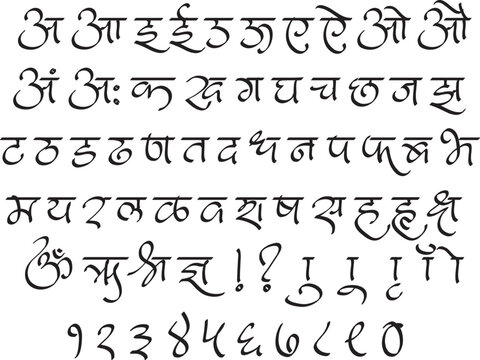 अ आ इ ई उ ऊ ए ऐ ओ औ
अं अः क ख ग घ च छ ज झ
ट ठ ड ढ ण त द ध न प फ ब भ
म य र ल ळ व श ष स ह हृ क्ष
ॐ ऋ श्र ज्ञ ! ? ु ू ृ ॉ ो
१ २ ३ ४ ५ ६ ७ ८ ९ ०